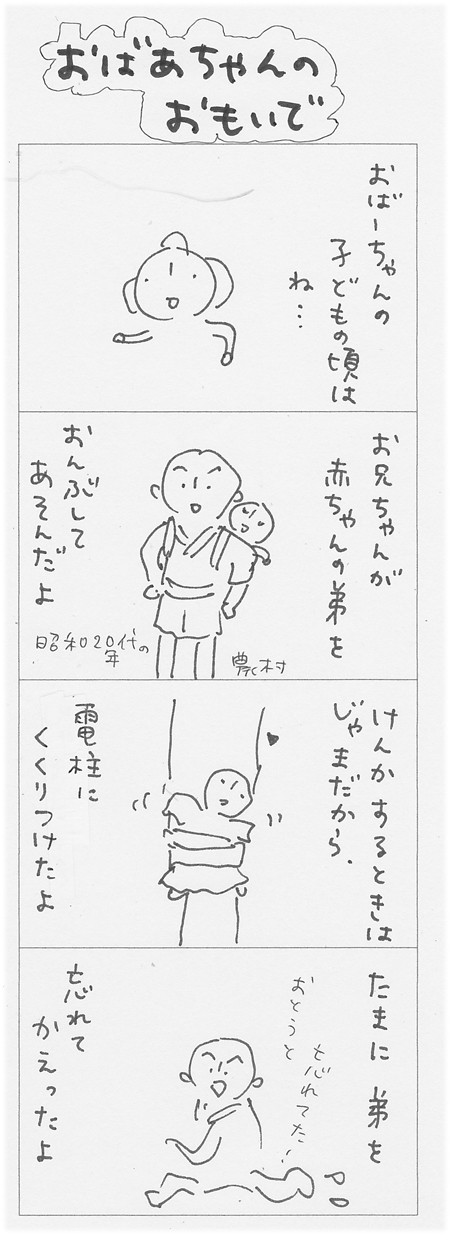 おばあちゃんの
おもいで
おばーちゃんの
子どもの頃は
ね…
お兄ちゃんが
赤ちゃんの弟を
おんぶして
あそんだよ
昭和20年代の
農村
けんかするときは
じゃまだから、
電柱に
くくりつけたよ
たまに 弟を
おとうと
忘れてた!
忘れて
かえったよ